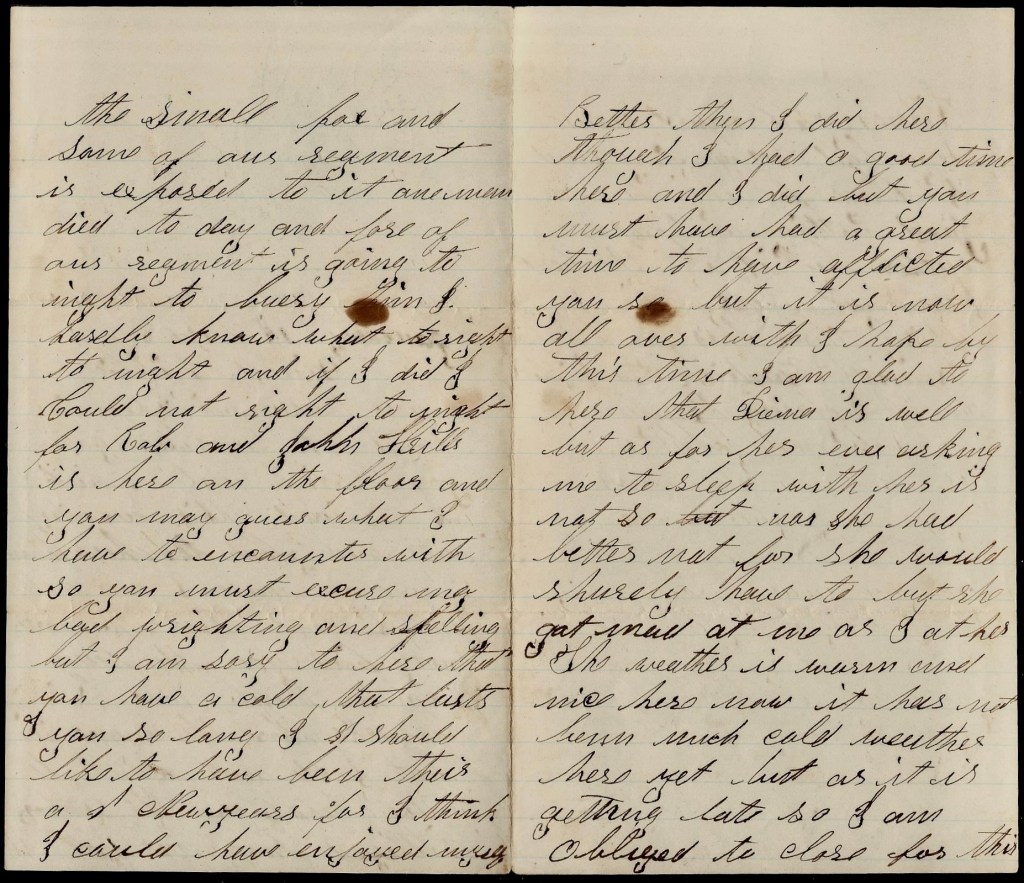 the small pox and
some of our regment
is exposed to it one man
died to day and fore of
our regment is going to
night to buery him I
hardly know what to right
to night and if I did I
Could not right to night
for Rob and John
is here on the floor and
you may guess what I
have to encounter with
so you must excuse my
bad wrighting and spelling
but I am sory to here that
you have a cold that lasts
you so long I should
like to have been their
a Newyears for I think
I could have enjoyed myself
Better then I did here
though I had a good time
here and I did but you
must have had a great
time to have afflicted
you so but it is now
all over with I hope by
this time I am glad to
here that is well
but as for her ever asking
me to sleep with her is
not so but nor she had
better not for she would
shurely have to but she
got mad at me as I at her
The weather is warm and
nice here now it has not
benn much cold weather
here yet but as it is
getting late so I am
Obliged to close for this